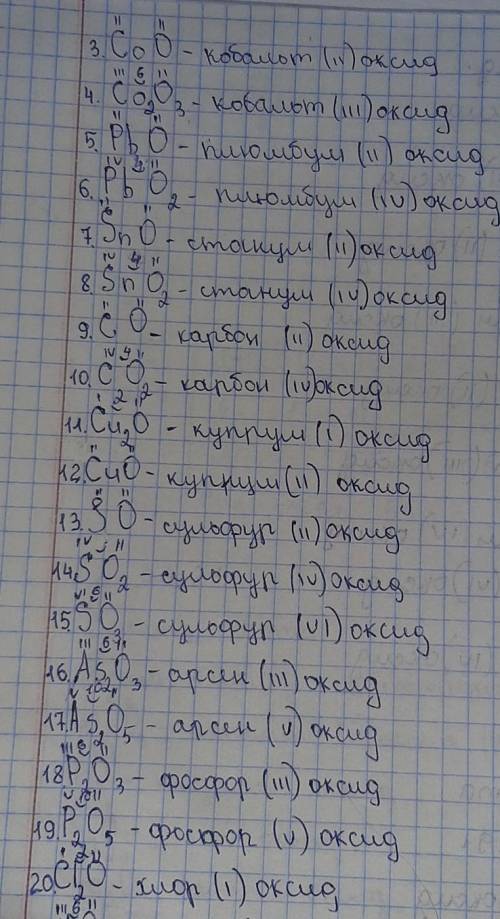 3. CoO - кобальт (II) оксид
4. Co₂O₃ - кобальт (III) оксид
5. PbO - плюмбум (II) оксид
6. PbO₂ - плюмбум (IV) оксид
7. SnO - станум (II) оксид
8. SnO₂ - станум (IV) оксид
9. CO - карбон (II) оксид
10. CO₂ - карбон (IV) оксид
11. Cu₂O - купрум (I) оксид
12. CuO - купрум (II) оксид
13. SO - сульфур (II) оксид
14. SO₂ - сульфур (IV) оксид
15. SO₃ - сульфур (VI) оксид
16. As₂O₃ - арсен (III) оксид
17. As₂O₅ - арсен (V) оксид
18 P₂O₃ - фосфор (III) оксид
19. P₂O₅ - фосфор (V) оксид
20. Cl₂O - хлор (I) оксид